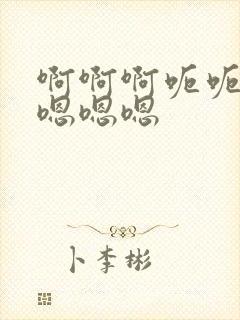 啊啊啊呃呃
嗯嗯嗯
卜李彬